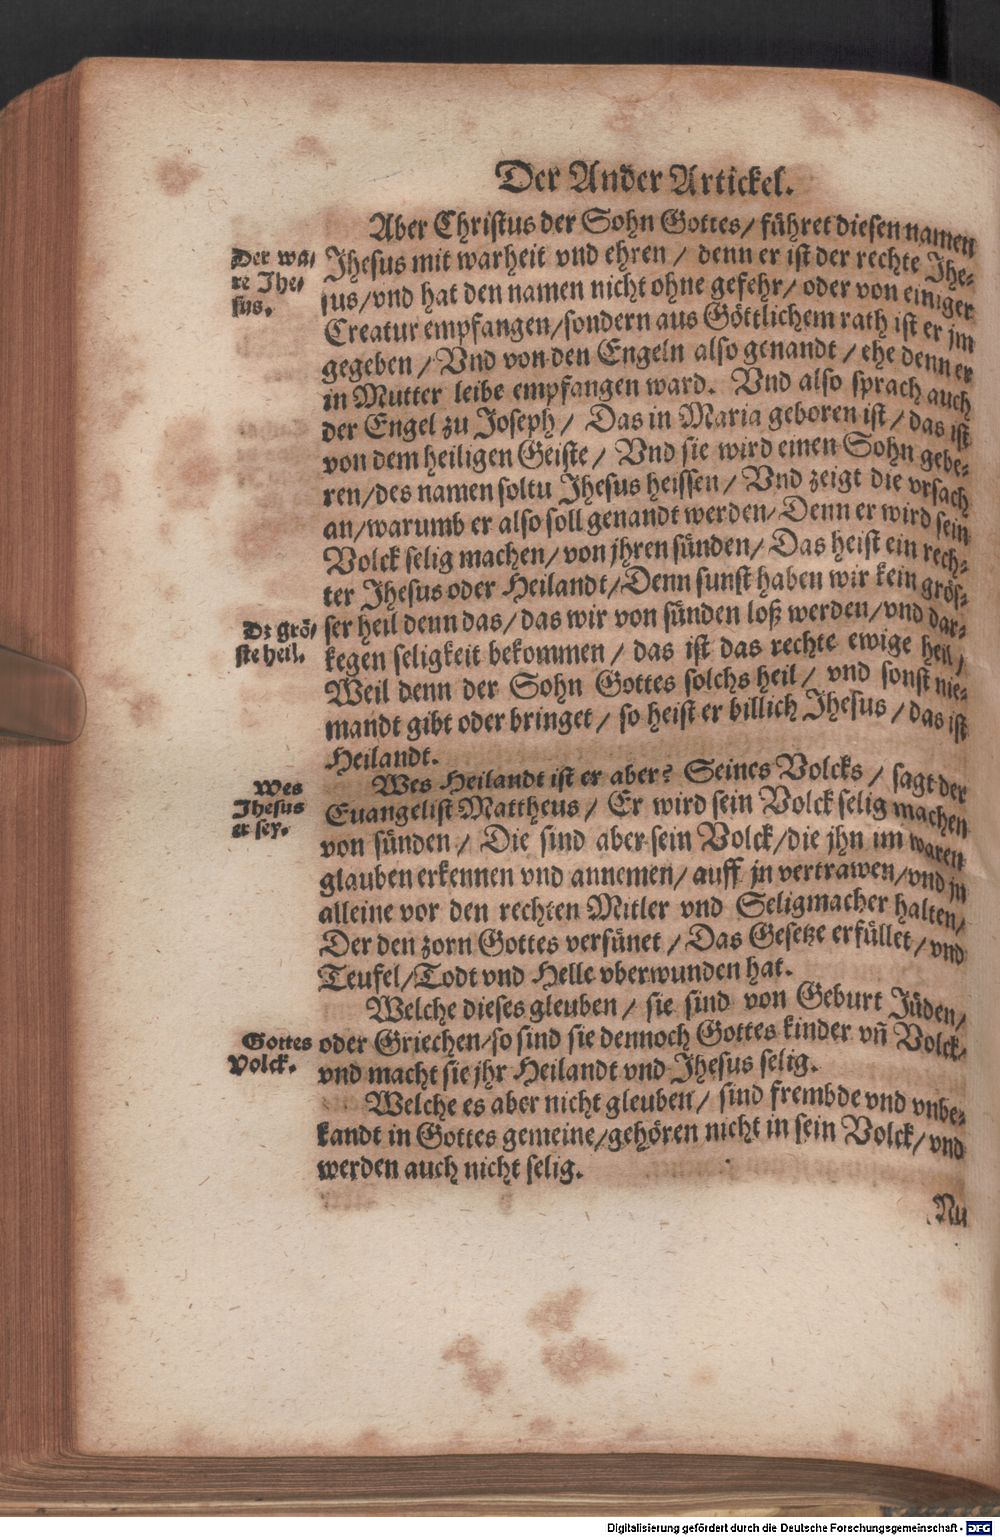 Der Ander Artickel.
Aber Christus der Sohn Gottes/ führet diesen namen
Jhesus mit warheit vnd ehren / denn er ist der rechte Jhe-
sus/vnd hat den namen nicht ohne gefehr/ oder von einiger
Creatur empfangen/sondern aus Göttlichem rath ist er jm
gegeben / Vnd von den Engeln also genandt / ehe denn er
in Mutter leibe empfangen ward. Vnd also sprach auch
der Engel zu Joseph / Das in Maria geboren ist / das ist
von dem heiligen Geiste / Vnd sie wird einen Sohn gebe-
ren/des namen soltu Jhesus heissen / Vnd zeigt die vrsach
an/warumb er also soll genandt werden/ Denn er wird sein
Volck selig machen/ von jhren sünden/ Das heist ein rech-
ter Jhesus oder Heilandt/Denn sunst haben wir kein grös-
ser heil denn das/ das wir von sünden loß werden/vnd dar-
kegen seligkeit bekommen / das ist das rechte ewige heil/
Weil denn der Sohn Gottes solchs heil / vnd sonst nie-
mandt gibt oder bringet / so heist er billich Jhesus / das ist
Heilandt.
Der wa/
re Jhe/
sus.
Dz grö/
ste heil.
Wes Heilandt ist er aber? Seines Volcks / sagt der
Euangelist Mattheus / Er wird sein Volck selig machen
von sünden / Die sind aber sein Volck/die jhn im waren
glauben erkennen vnd annemen/ auff jn vertrawen/vnd jn
alleine vor den rechten Mitler vnd Seligmacher halten/
Der den zorn Gottes versünet / Das Gesetze erfüllet / vnd
Teufel/Todt vnd Helle vberwunden hat.
Wes
Jhesus
er sey.
Welche dieses gleuben / sie sind von Geburt Jüden/
oder Griechen/so sind sie dennoch Gottes kinder vn̄ Volck/
vnd macht sie jhr Heilandt vnd Jhesus selig.
Gottes
Volck.
Welche es aber nicht gleuben / sind frembde vnd vnbe-
kandt in Gottes gemeine/gehören nicht in sein Volck/ vnd
werden auch nicht selig.
Nu
Digitalisierung gefördert durch die Deutsche Forschungsgemeinschaft - DFG